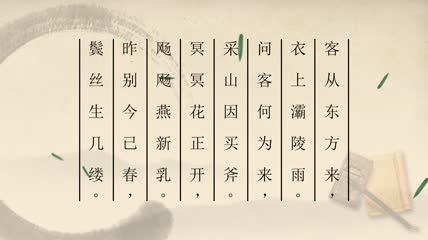 客从东方来，
衣上灞陵雨。
问客何为来，
采山因买斧。
冥冥花正开，
飏飏燕新乳。
昨别今已春，
鬓丝生几缕。